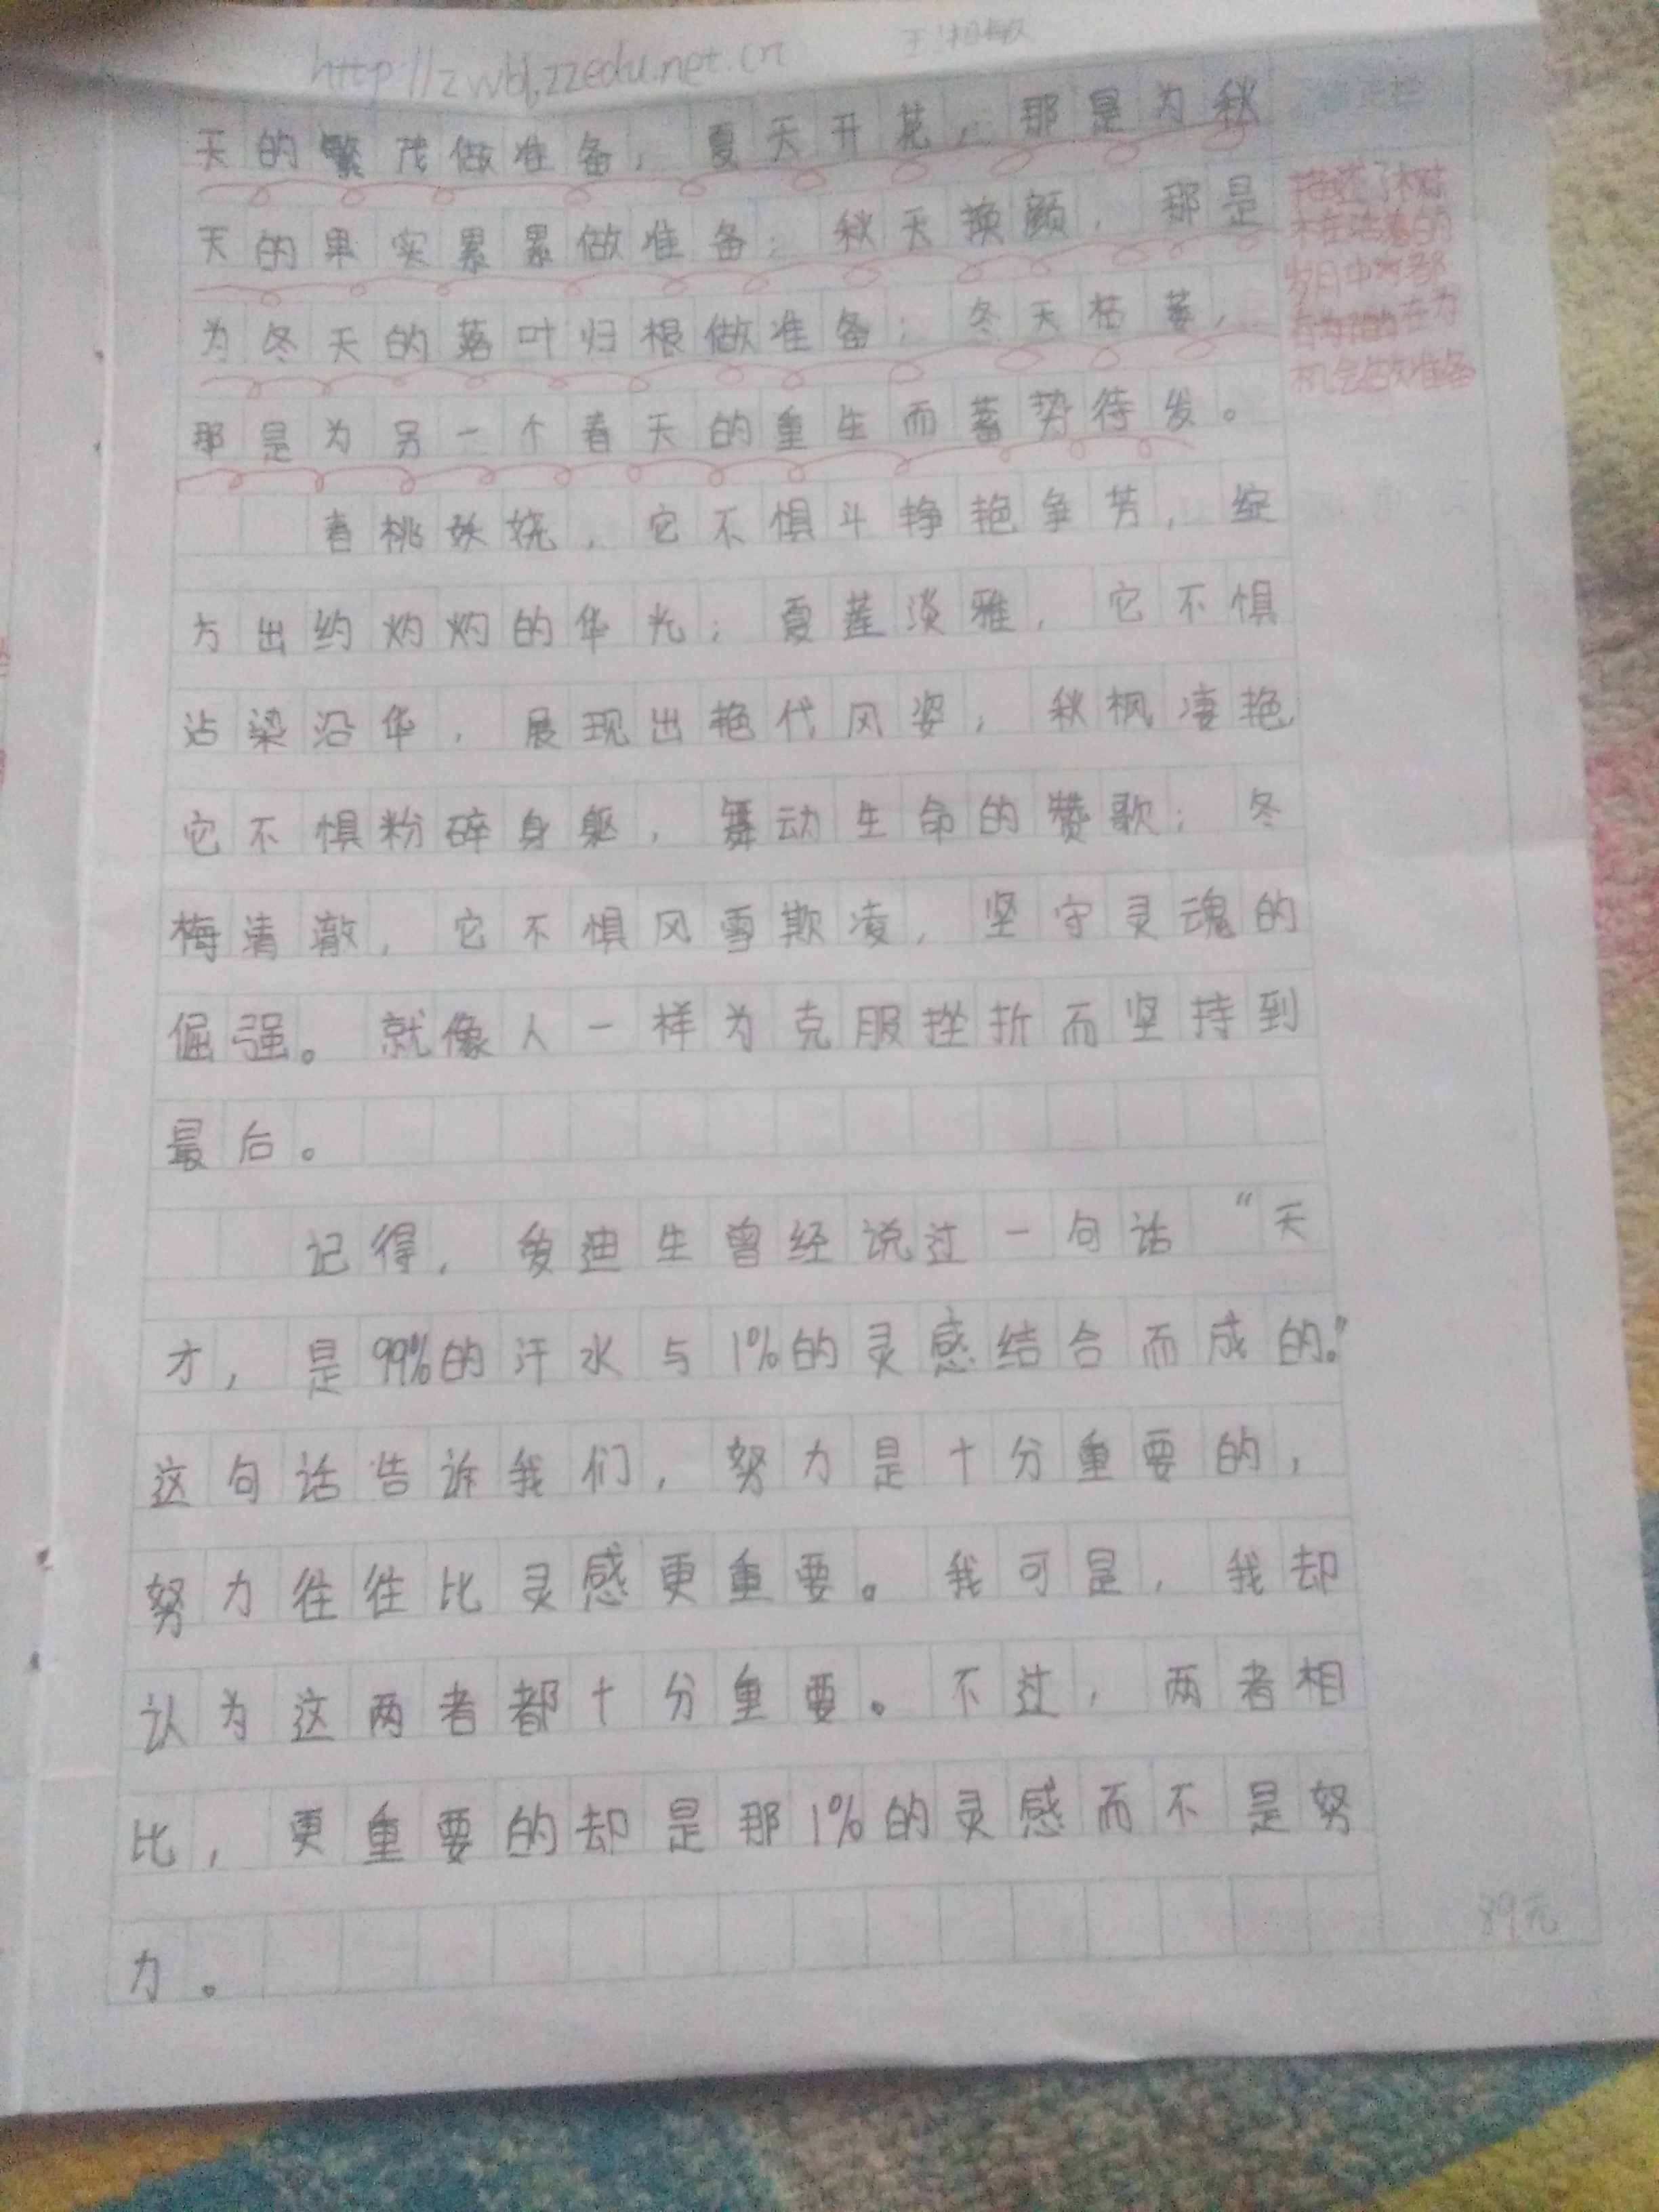 http://zwbl.zzedu.net.cn
天的繁茂做准备，夏天开花，那是为秋
天的果实累累做准备；秋天换颜，那是
为冬天的落叶归根做准备；冬天枯萎，
那是为另一个春天的重生而蓄势待发。
春桃妖娆，它不惧斗艳争芳，绽
方出约灼灼的华光；夏莲淡雅，它不惧
沾染沿华，展现出艳代风姿；秋枫凄艳，
它不惧粉碎身躯，舞动生命的赞歌；冬
梅清澈，它不惧风雪欺凌，坚守灵魂的
倔强。就像人一样为克服挫折而坚持到
最后。
记得，爱迪生曾经说过一句话“天
才，是99%的汗水与1%的灵感结合而成的。”
这句话告诉我们，努力是十分重要的，
努力往往比灵感更重要。我可是，我却
认为这两者都十分重要。不过，两者相
比，更重要的却是那1%的灵感而不是努
力。
描述了树
木在浩荡的
岁月中为都
在为
机会做准备
89元